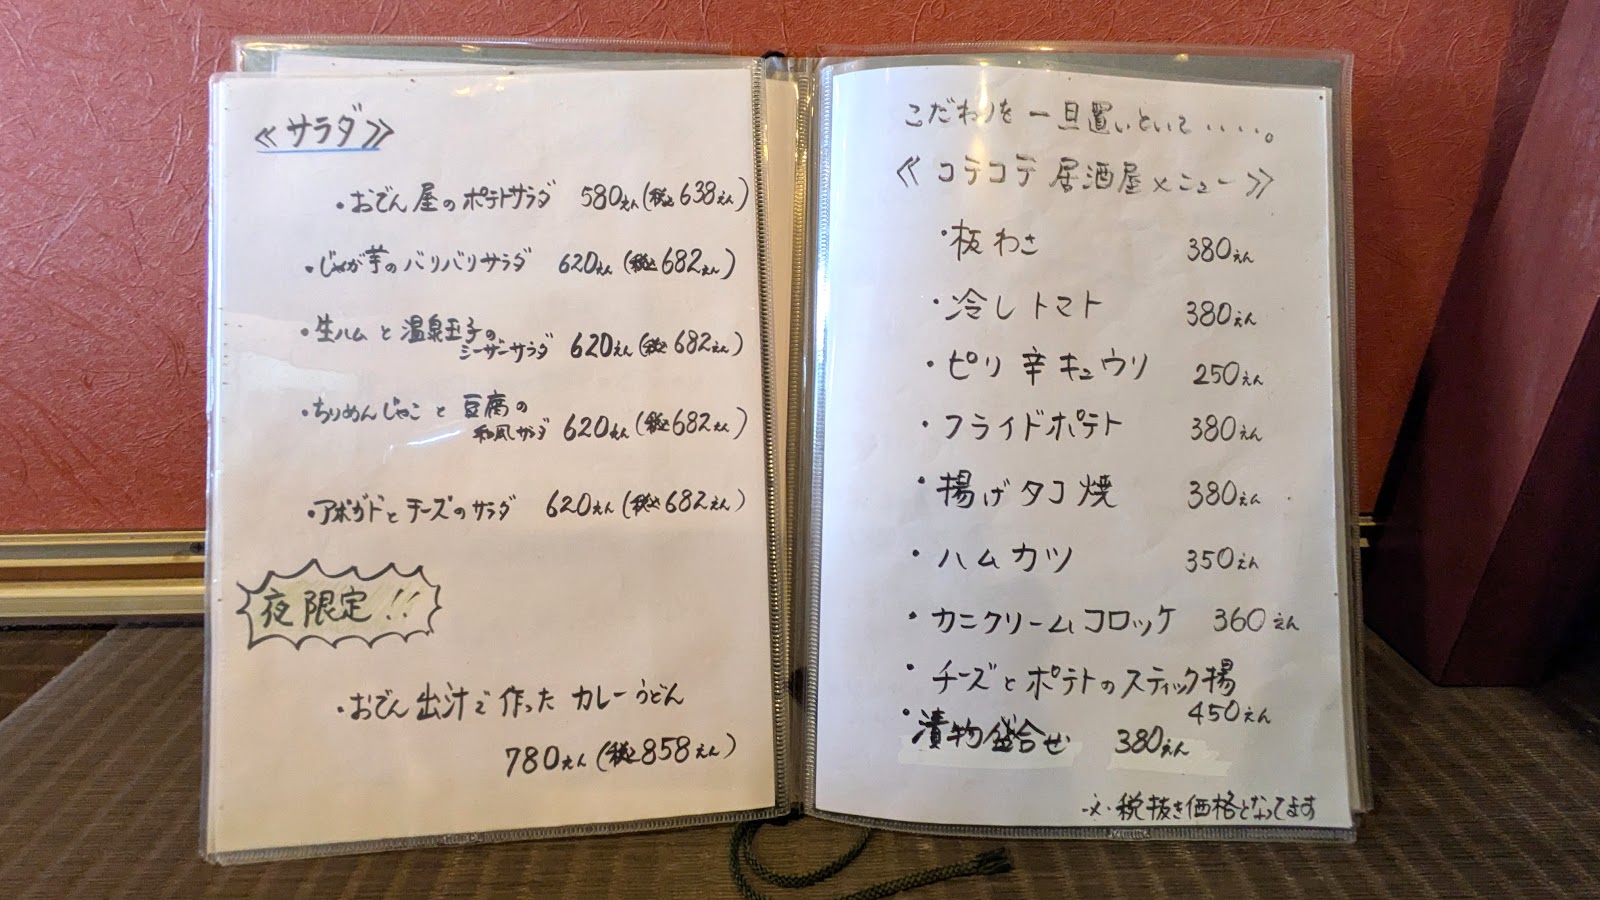 ≪サラダ≫
・おでん屋のポテトサラダ 580えん(税込638えん)
・じゃが芋のバリバリサラダ 620えん(税込682えん)
・生ハムと温泉玉子の
シーザーサラダ 620えん(税込682えん)
・ちりめんじゃこと豆腐の
和風サラダ 620えん(税込682えん)
・アボガドとチーズのサラダ 620えん(税込682えん)
夜限定!!
・おでん出汁で作ったカレーうどん
780えん(税込858えん)
こだわりを一旦置いといて・・・・。
≪コテコテ居酒屋メニュー≫
・板わさ 380えん
・冷しトマト 380えん
・ピリ辛キュウリ 250えん
・フライドポテト 380えん
・揚げタコ焼 380えん
・ハムカツ 350えん
・カニクリームコロッケ 360えん
・チーズとポテトのスティック揚
450えん
・漬物盛合せ 380えん
※税抜き価格となってます